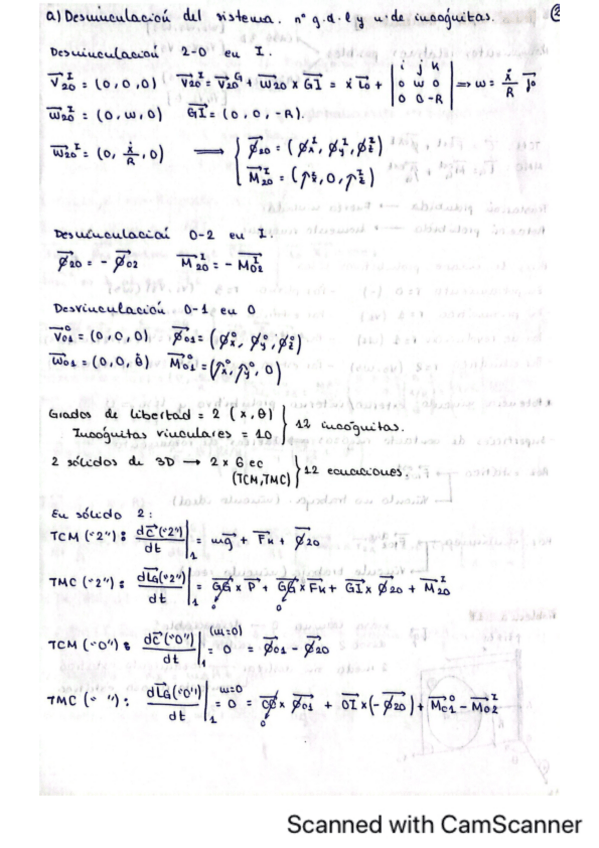 a) Desvinculación del sistema. nº g.d.l y nº de incógnitas.
Desvinculación 2-0 en I.
V₂₀ᴵ = (0, 0, 0) V₂₀ᴵ = V₂₀ᴳ + ω₂₀ × GI = ẋ i₀ + | i j k ; 0 ω 0 ; 0 0 -R | ⟹ ω = ẋ/R j₀
ω₂₀ᴵ = (0, ω, 0) GI = (0, 0, -R).
ω₂₀ᴵ = (0, ẋ/R, 0) ⟹ { ϕ₂₀ = (ϕₓᴵ, ϕᵧᴵ, ϕ_zᴵ)
M₂₀ᴵ = (Γₓᴵ, 0, Γ_zᴵ)
Desvinculación 0-2 en I.
ϕ₂₀ = - ϕ₀₂ M₂₀ᴵ = - M₀₂ᴵ
Desvinculación 0-1 en O
V₀₁ᴼ = (0, 0, 0) ϕ₀₁ = (ϕₓᴼ, ϕᵧᴼ, ϕ_zᴼ)
ω₀₁ = (0, 0, θ̇) M₀₁ᴼ = (Γₓᴼ, Γᵧᴼ, 0)
Grados de libertad = 2 (x, θ)
Incógnitas vinculares = 10 } 12 incógnitas.
2 sólidos de 3D → 2 x 6 ec
(TCM, TMC) } 12 ecuaciones.
En sólido 2:
TCM ("2"): dC("2")/dt |₁ = mg + Fk + ϕ₂₀
TMC ("2"): dL_G("2")/dt |₁ = GG × P + GG × Fk + GI × ϕ₂₀ + M₂₀
TCM ("0"): dC("0")/dt |₁ (m=0) = 0 = ϕ₀₁ - ϕ₂₀
TMC (" "): dL_G("0")/dt |₁ m=0 = 0 = OO × ϕ₀₁ + OI × (-ϕ₂₀) + M₀₁ᴼ - M₀₂ᴵ
Scanned with CamScanner